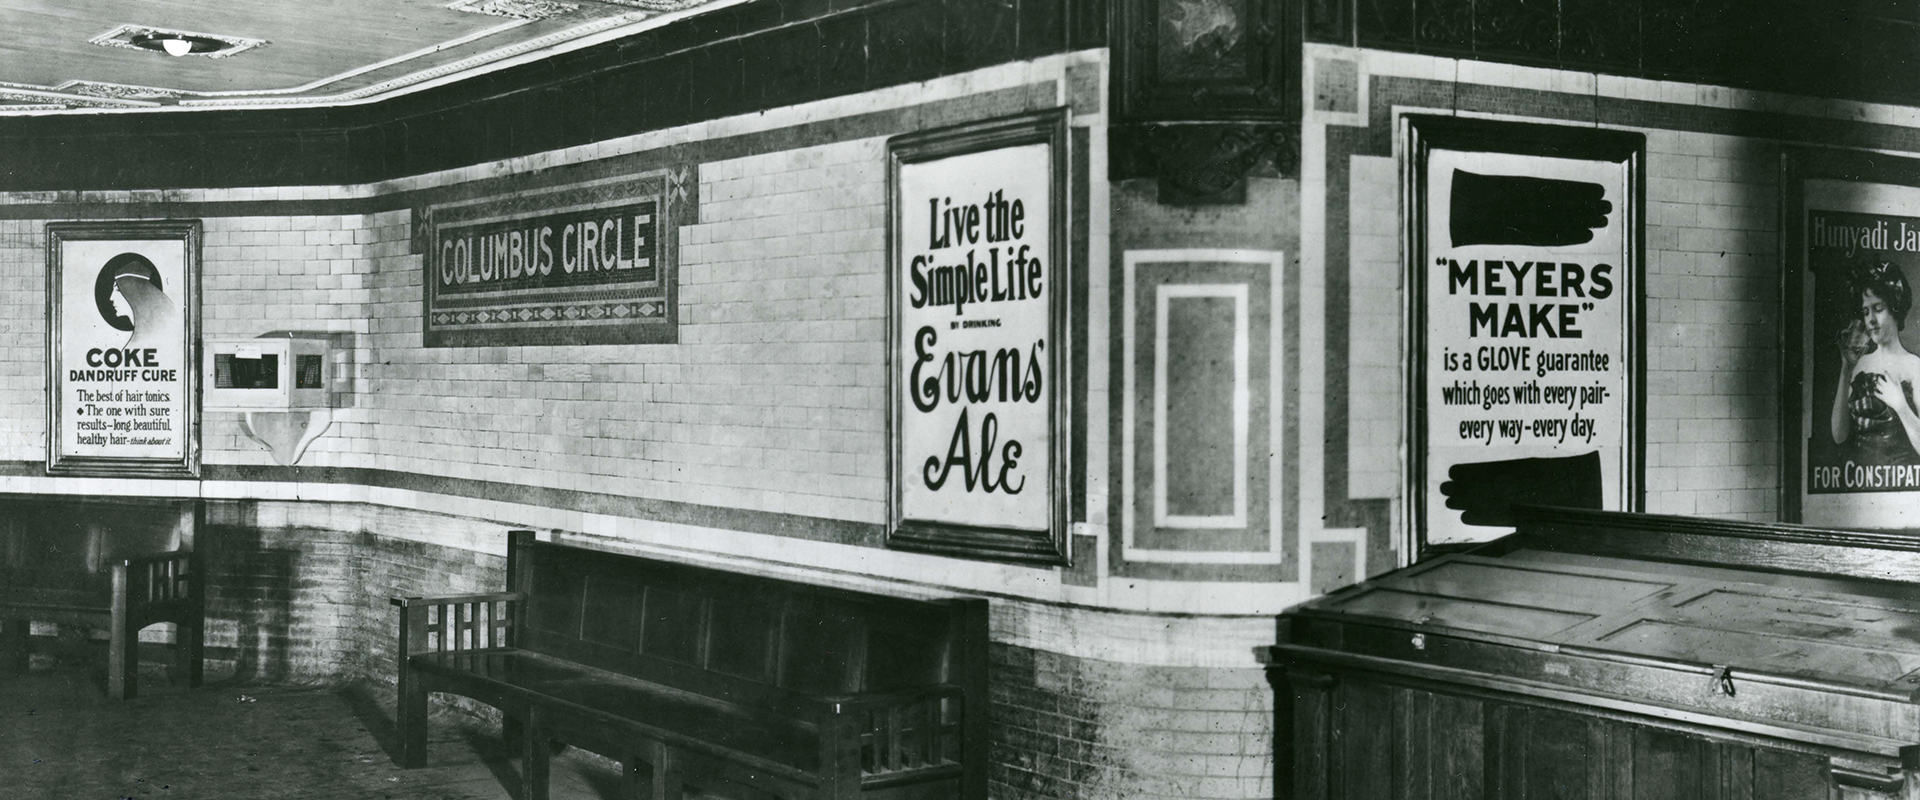 COKE
DANDRUFF CURE
The best of hair tonics.
◆ The one with sure
results-long beautiful,
healthy hair-think about it
COLUMBUS CIRCLE
Live the
Simple Life
BY DRINKING
Evans'
Ale
"MEYERS
MAKE"
is a GLOVE guarantee
which goes with every pair-
every way-every day.
Hunyadi Ja
FOR CONSTIPAT